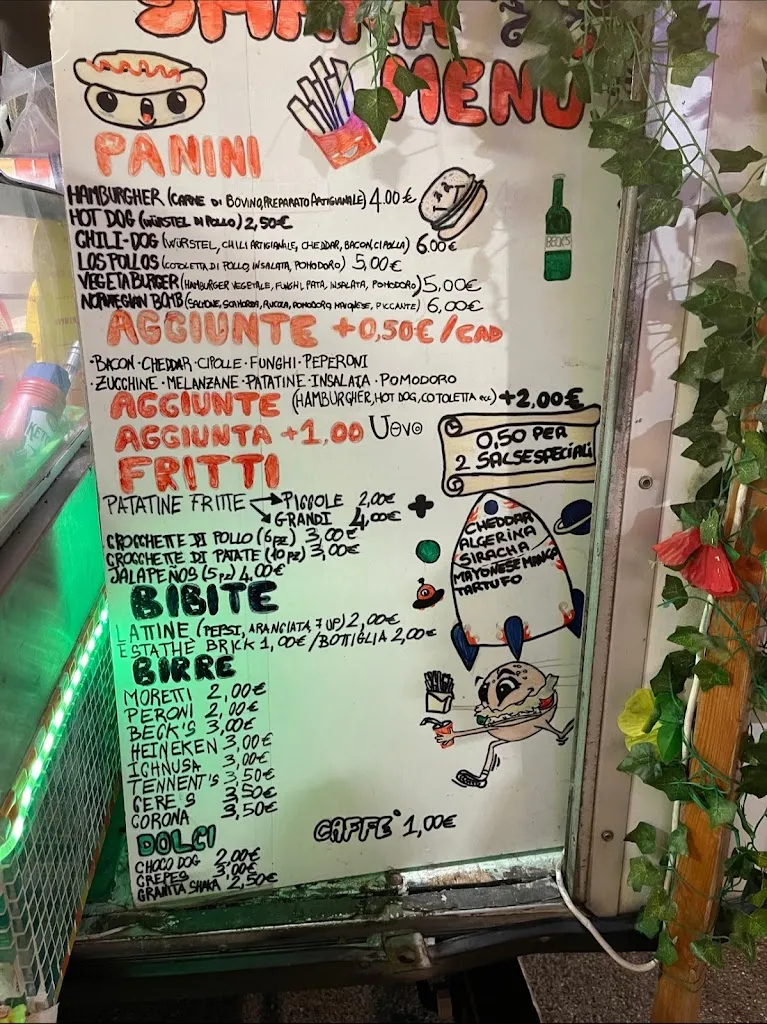 MENÙ
PANINI
HAMBURGHER (CARNE DI BOVINO, PREPARATO ARTIGIANALE) 4.00€
HOT DOG (WÜRSTEL DI POLLO) 2,50€
CHILI-DOG (WÜRSTEL, CHILI ARTIGIANALE, CHEDDAR, BACON, CIPOLLA) 6.00€
LOS POLLOS (COTOLETTA DI POLLO, INSALATA, POMODORO) 5,00€
VEGETABURGER (HAMBURGER VEGETALE, FUNGHI, PATA, INSALATA, POMODORO) 5,00€
NORWEGIAN BOMB (SALMONE, SCAMORZA, RUCOLA, POMODORO, MAIONESE, PICCANTE) 6,00€
AGGIUNTE +0,50€/CAD
·BACON·CHEDDAR·CIPOLLE·FUNGHI·PEPERONI
·ZUCCHINE·MELANZANE·PATATINE·INSALATA·POMODORO
AGGIUNTE (HAMBURGHER, HOT DOG, COTOLETTA ecc) +2,00€
AGGIUNTA +1,00 UOVO
0,50 PER
2 SALSE SPECIALI
FRITTI
PATATINE FRITTE PICCOLE 2,00€
GRANDI 4,00€
+
CROCCHETTE DI POLLO (6pz) 3,00€
CROCCHETTE DI PATATE (10pz) 3,00€
JALAPEÑOS (5pz) 4.00€
CHEDDAR
ALGERINA
SIRACHA
MAYONESE MANGA
TARTUFO
BIBITE
LATTINE (PEPSI, ARANCIATA, 7 UP) 2,00€
ESTATHE BRICK 1,00€/BOTTIGLIA 2,00€
BIRRE
MORETTI 2,00€
PERONI 2,00€
BECK'S 3,00€
HEINEKEN 3,00€
ICHNUSA 3,00€
TENNENT'S 3,50€
CERE'S 3,50€
CORONA 3,50€
DOLCI
CHOCO DOG 2,00€
CREPES 3,00€
GRANITA SHAKA 2,50€
CAFFE' 1,00€
BECK'S